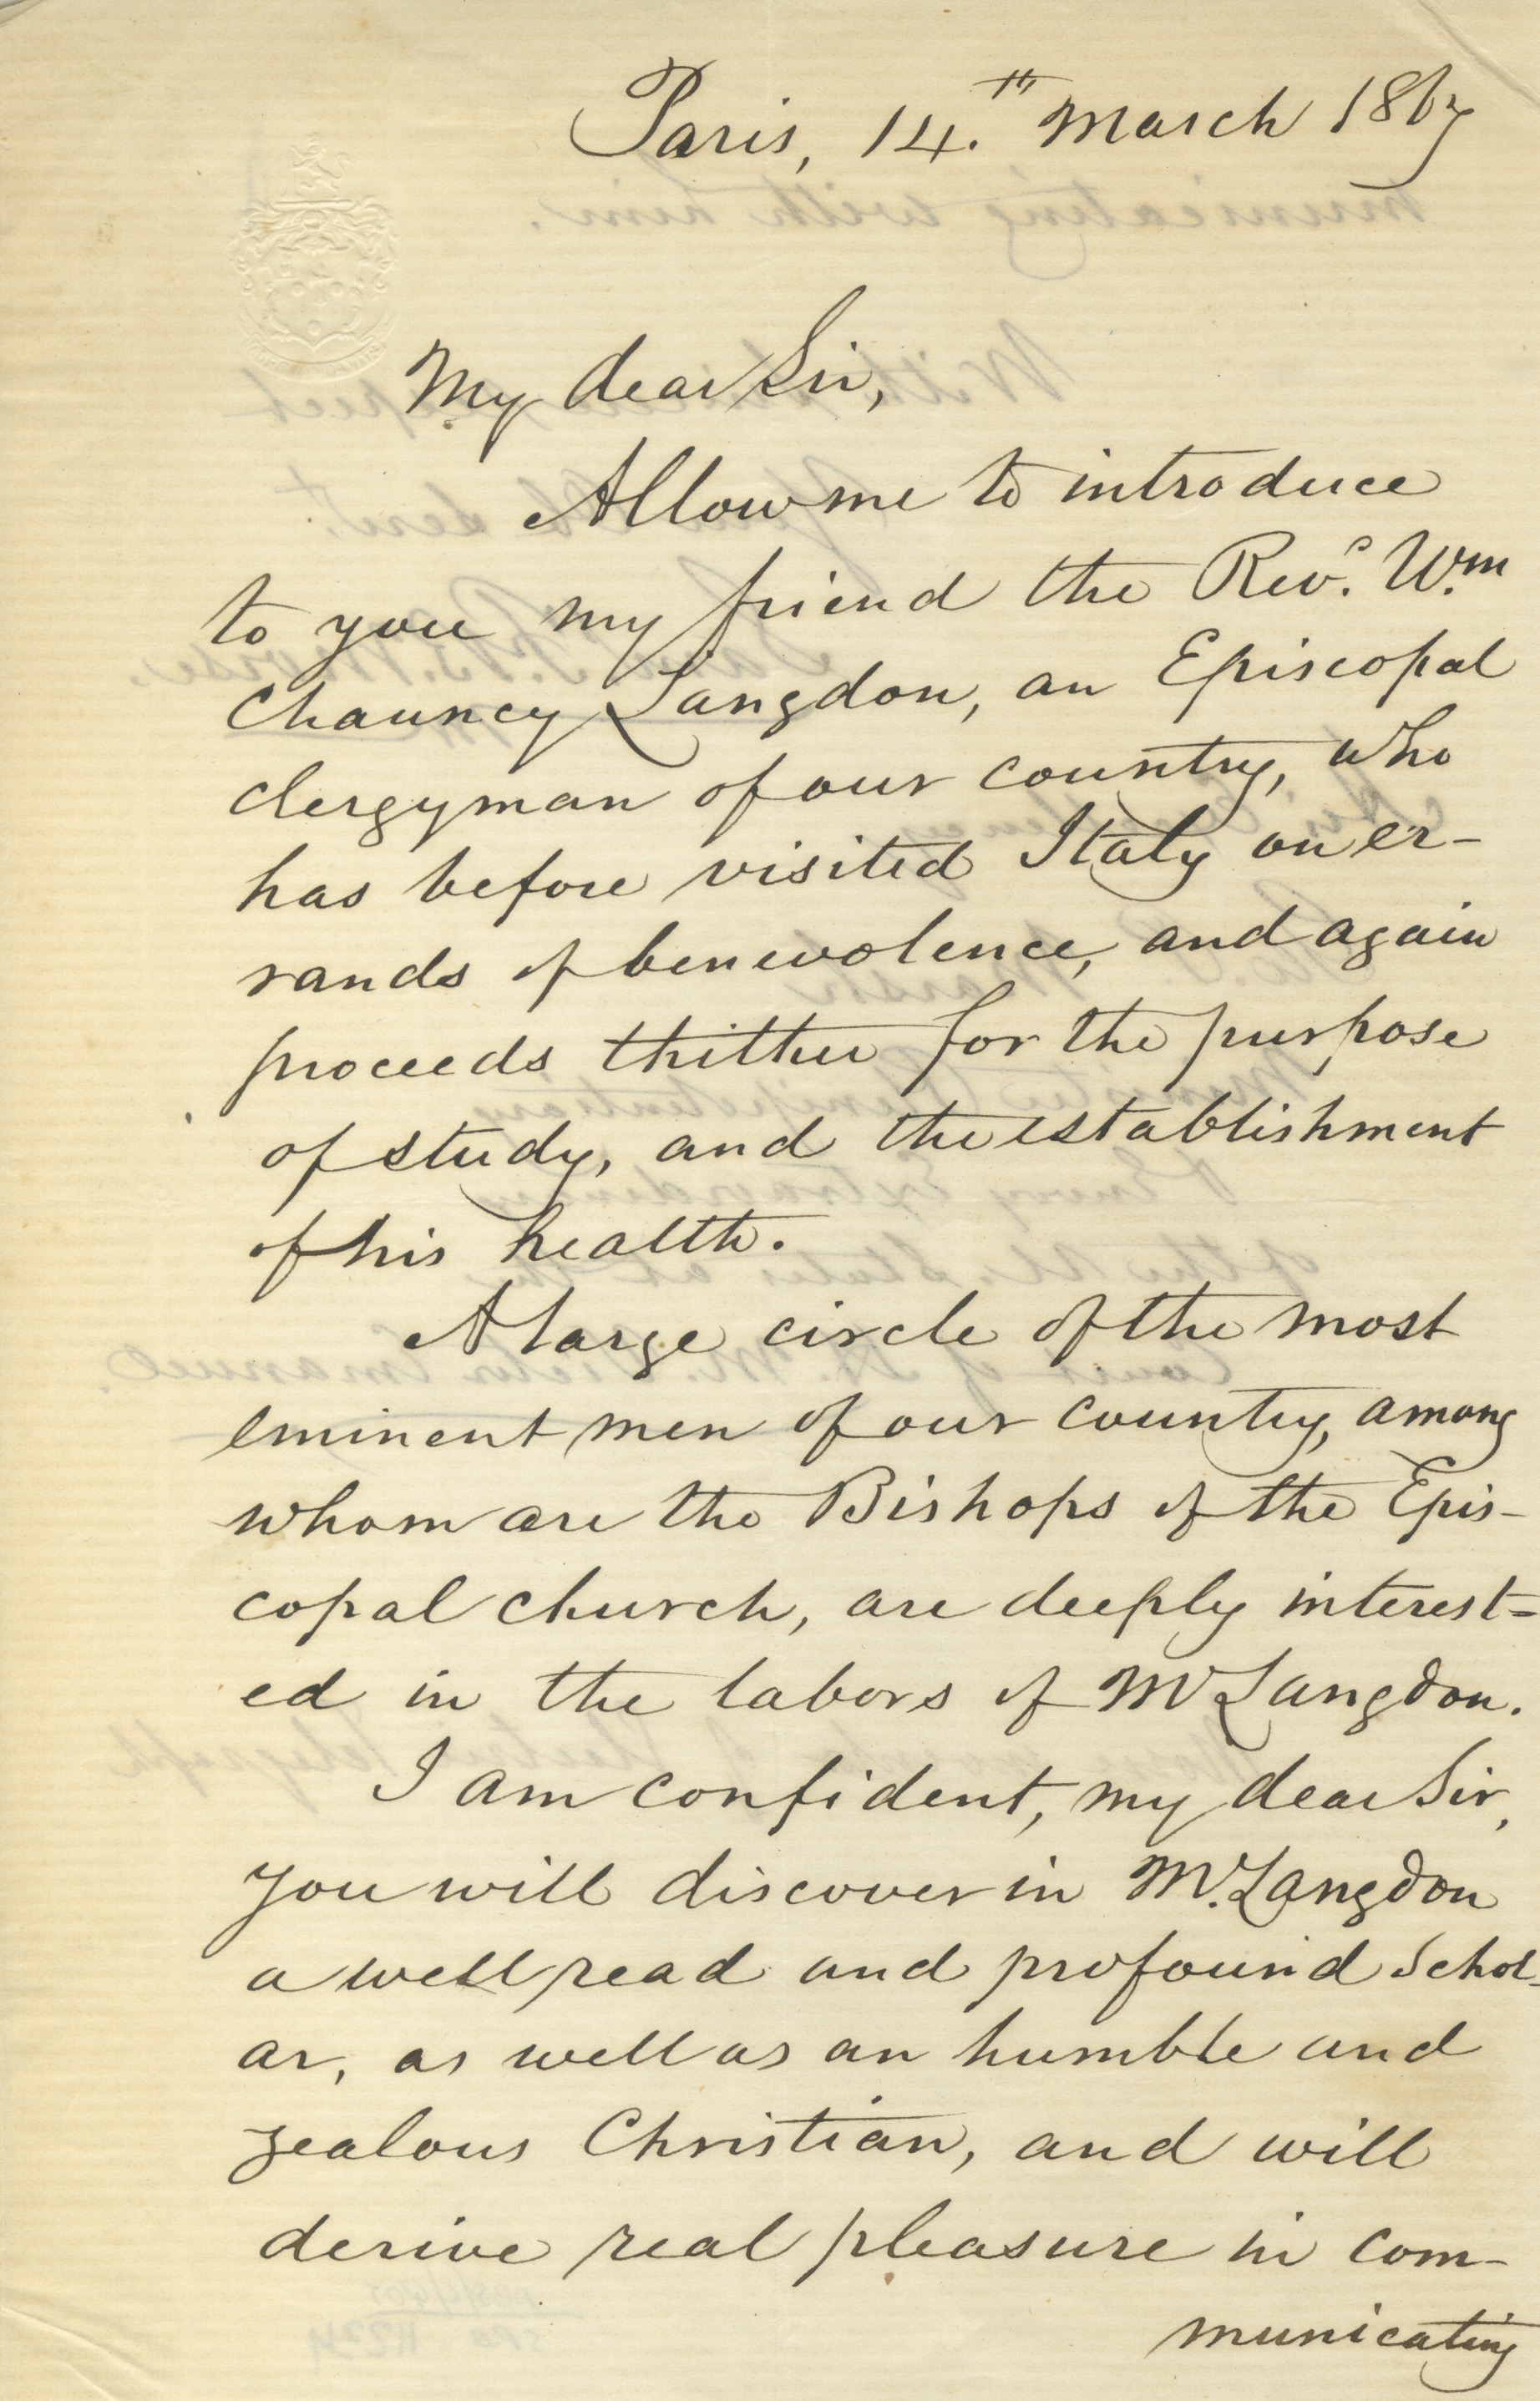 Paris, 14.th March 1867
My dear Sir,
Allow me to introduce
to you my friend the Revd. Wm
Chauncy Langdon, an Episcopal
clergyman of our country, who
has before visited Italy on er-
rands of benevolence, and again
proceeds thither for the purpose
of study, and the establishment
of his health.
A large circle of the most
eminent men of our country, among
whom are the Bishops of the Epis-
copal church, are deeply interest=
ed in the labors of Mr Langdon.
I am confident, my dear Sir,
you will discover in Mr. Langdon
a well read and profound Schol-
ar, as well as an humble and
zealous Christian, and will
derive real pleasure in com-
municating